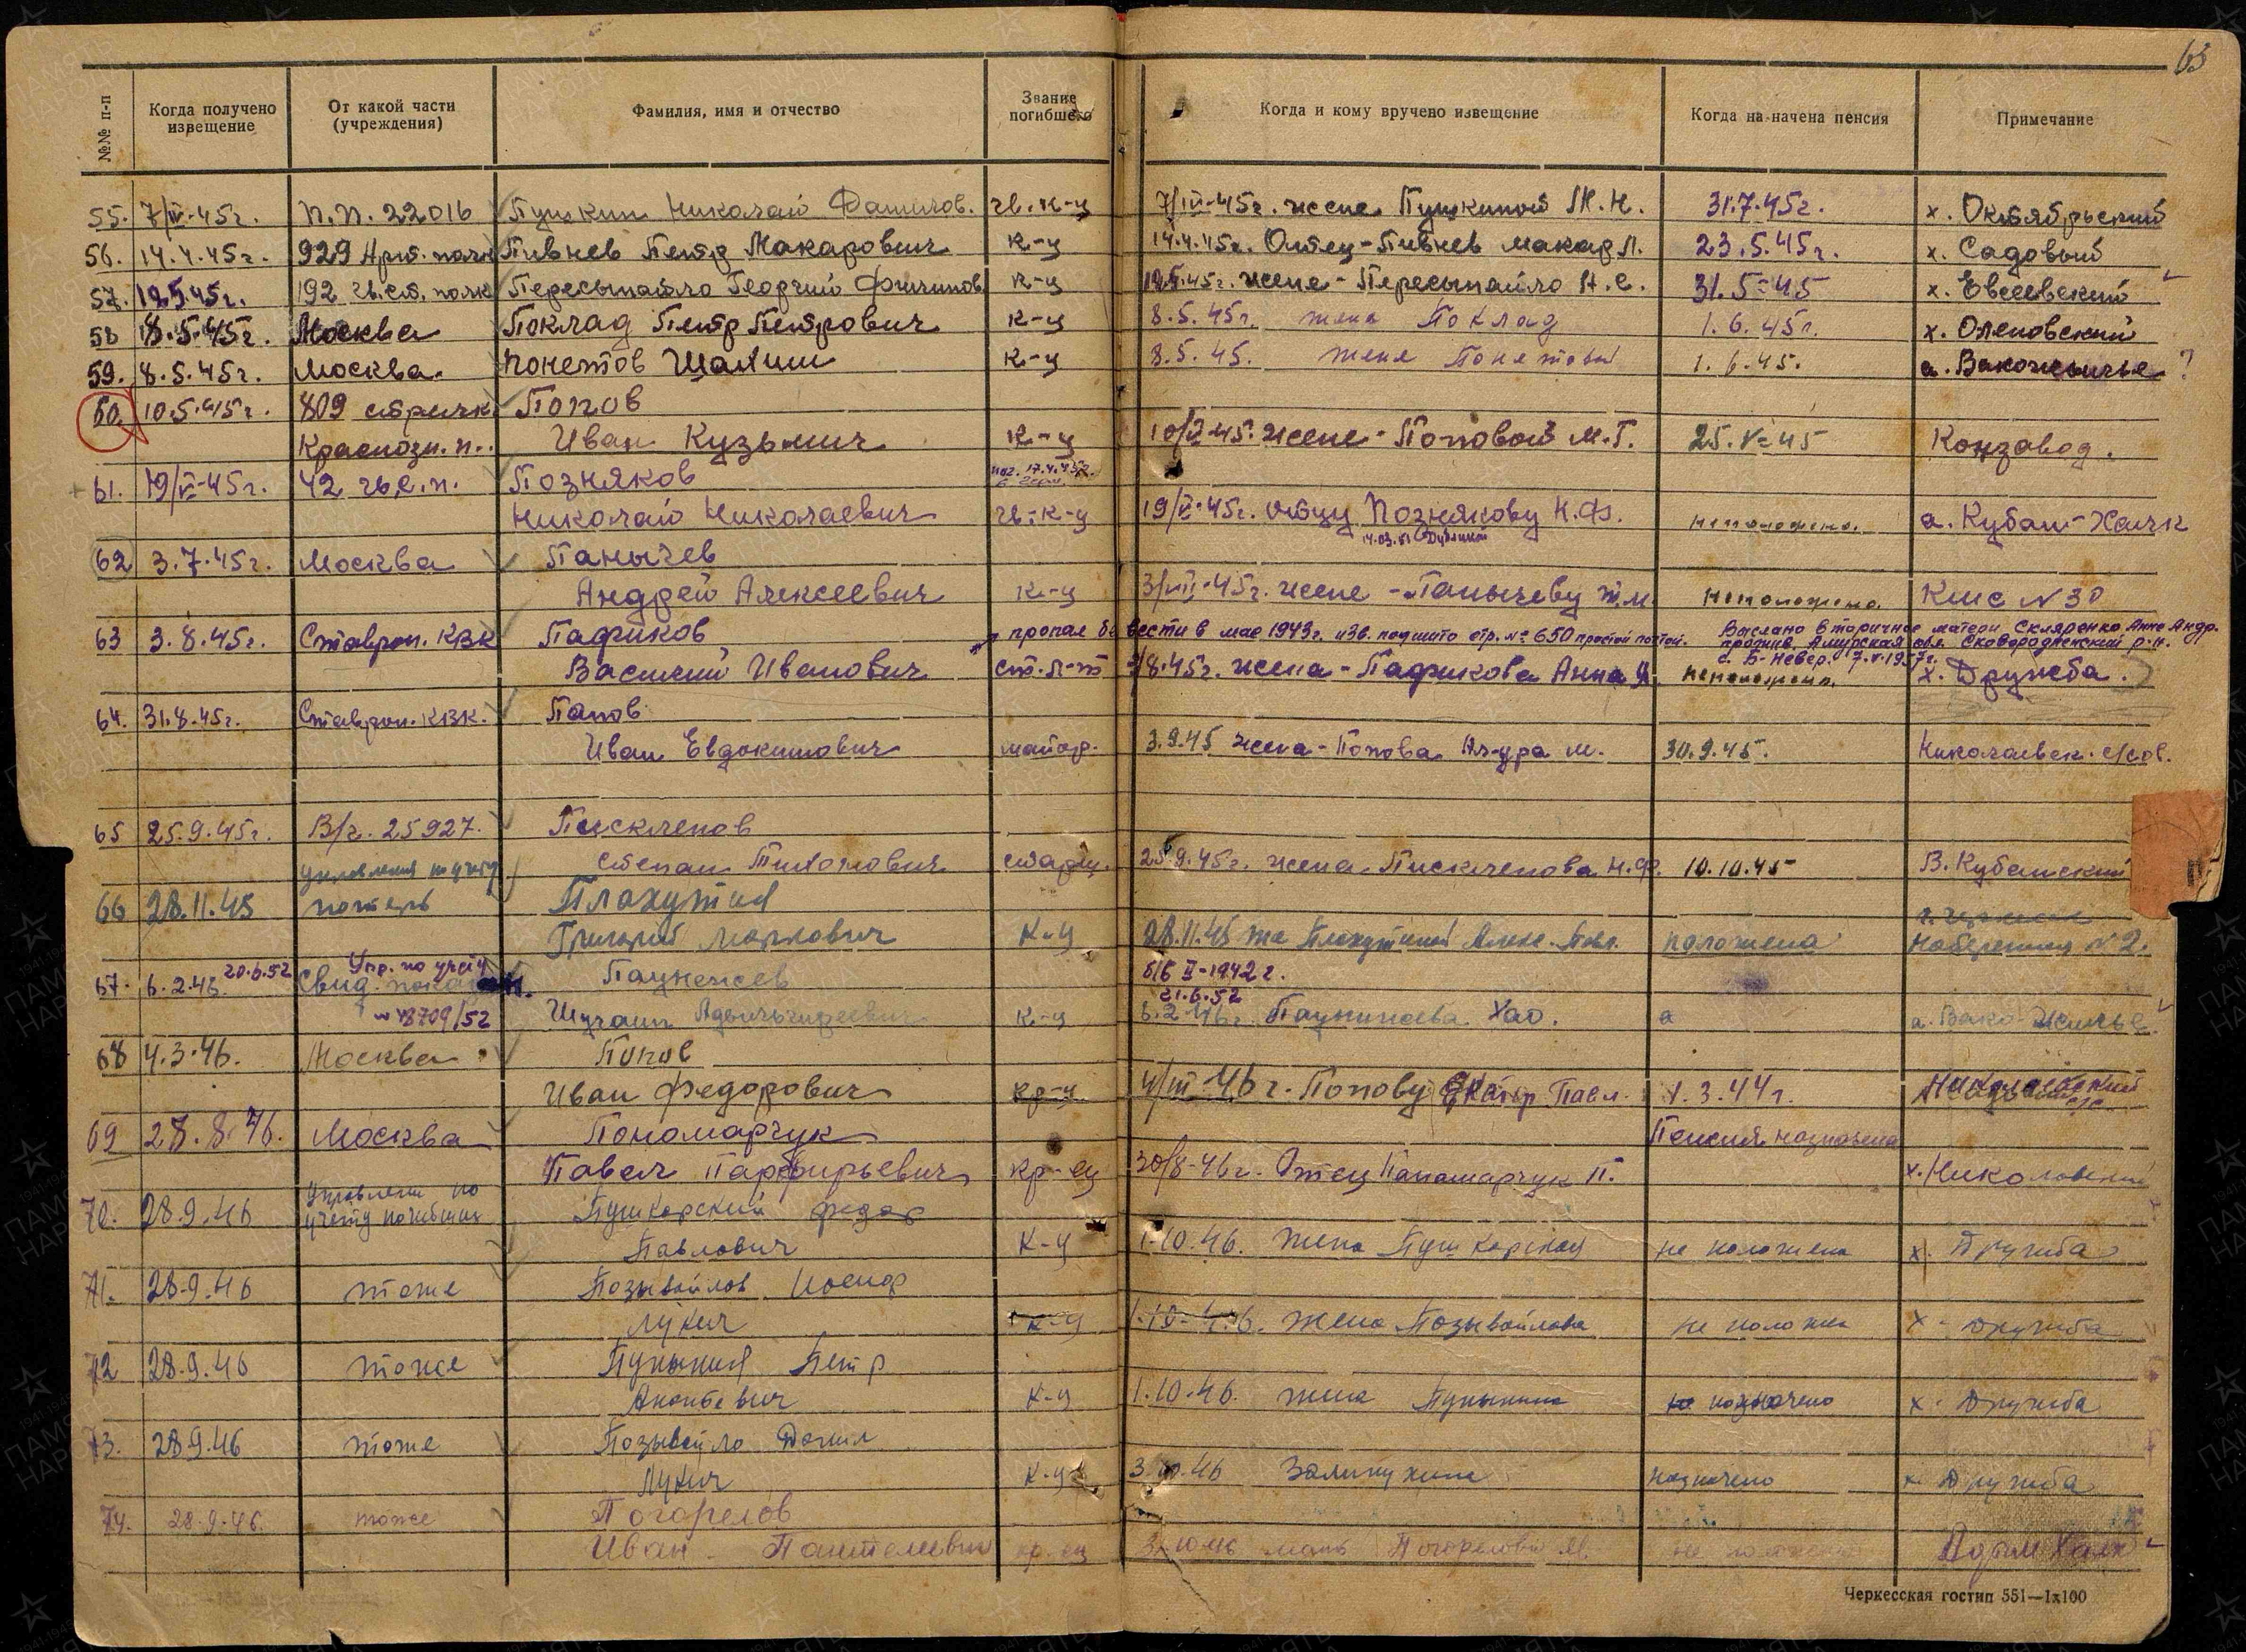 63
№№ п-п | Когда получено извещение | От какой части (учреждения) | Фамилия, имя и отчество | Звание погибшего | Когда и кому вручено извещение | Когда назначена пенсия | Примечание
55. 7/IV-45г. п.п. 22016 Пушкин Николай Данилов. гв. к-ц 7/IV-45г. жене Пушкиной М.Н. 31.7.45г. х. Октябрьский
56. 14.4.45г. 929 Арт. полк Пивнев Петр Макарович к-ц 14.4.45г. Отец-Пивнев Макар П. 23.5.45г. х. Садовый
57. 12.5.45г. 192 гв. ст. полк Пересыпайло Георгий Филипов к-ц 12.5.45г. жене-Пересыпайло А.С. 31.5-45 х. Евсеевский
58 8.5.45г. Москва Поклад Петр Петрович к-ц 8.5.45г. жена Поклад 1.6.45г. х.
59. 8.5.45г. Москва. Понежов к-ц 8.5.45. жене 1.6.45. а. Вакожвилье ?
60. 10.5.45г. 809 стрелк Попов
Краснозн. п. Иван Кузьмич к-ц 10/V-45. жене-Поповой М.Т. 25.V-45 Конзавод.
61. 19/V-45г. 42 гв.с.п. Позняков пог. 17.4.45г.
Николай Николаевич гв. к-ц 19/V-45г. отцу Познякову Н.Ф. неположена. а. Кубан-Халк
14.03.81 Дубликат
62 3.7.45г. Москва Панычев
Андрей Алексеевич к-ц 3/VII-45г. жене-Панычеву неположена Кмс N 30
63 3.8.45г. Ставроп. КВК Пафиков пропал без вести в мае 1943г. изв. подшито стр. № 650 простой почтой. Выслано вторичное матери Скляренко Анне Андр.
прожив. Амурская обл. Сковородненский р-н.
с. Б-Невер. 7.V-1957г.
Василий Иванович ст. л-т 3/8.45г. жена-Пафикова Анна неположена. х. Дружба.
64. 31.8.45г. Ставроп. КВК. Попов
Иван Евдокимович майор. 3.9.45 жена-Попова Ал-дра М. 30.9.45. Николаевск. с/сов.
65 25.9.45г. В/ч. 25927. Пискленов
Степан Тихонович 25.9.45г. жена Пискленова Н.Ф. 10.10.45 В. Кубанский
66 28.11.45 управления по учету потерь Плахутин
Григорий Маркович к-ц 28.11.45 же Плахутиной Алекс. Павл. положена Набережная N 2.
67. 6.2.46. 20.6.52 Упр. по учету Паунежев б/в V-1942г.
Свид.
№ 48709/52 к-ц 21.6.52
6.2.46г. Хао. а а. Вако-Жилье
68 4.3.46. Москва Попов
Иван Федорович кр-ц 4/III-46г. Попову Павл. 1.3.44г. Николаевский с/с
69 28.8.46. Москва Пономарчук Пенсия назначена
Павел Парфирьевич кр-ец 30/8-46г. Отец Панамарчук П. х. Николаевский
70. 28.9.46 Управлени по учету погибших Пушкарский Федор
Павлович к-ц 1.10.46. жена Пушкарская не положена х. Дружба
71. 28.9.46 тоже Позывайлов Иосиф
Лукич к-ц 1.10-46. Жена Позывайлова не положен х. Дружба
72 28.9.46 тоже Пунынин Петр
к-ц 1.10.46. жена назначено х. Дружба
73. 28.9.46 тоже Позывайло Данил
Лукич к-ц 3.10.46 назначено х. Дружба
74. 28.9.46. тоже Погорелов
Иван Пантелеевич кр. ец 3.10.46 мать Погорелова М. не положена Адым Халк
Черкесская гостип 551—1х100